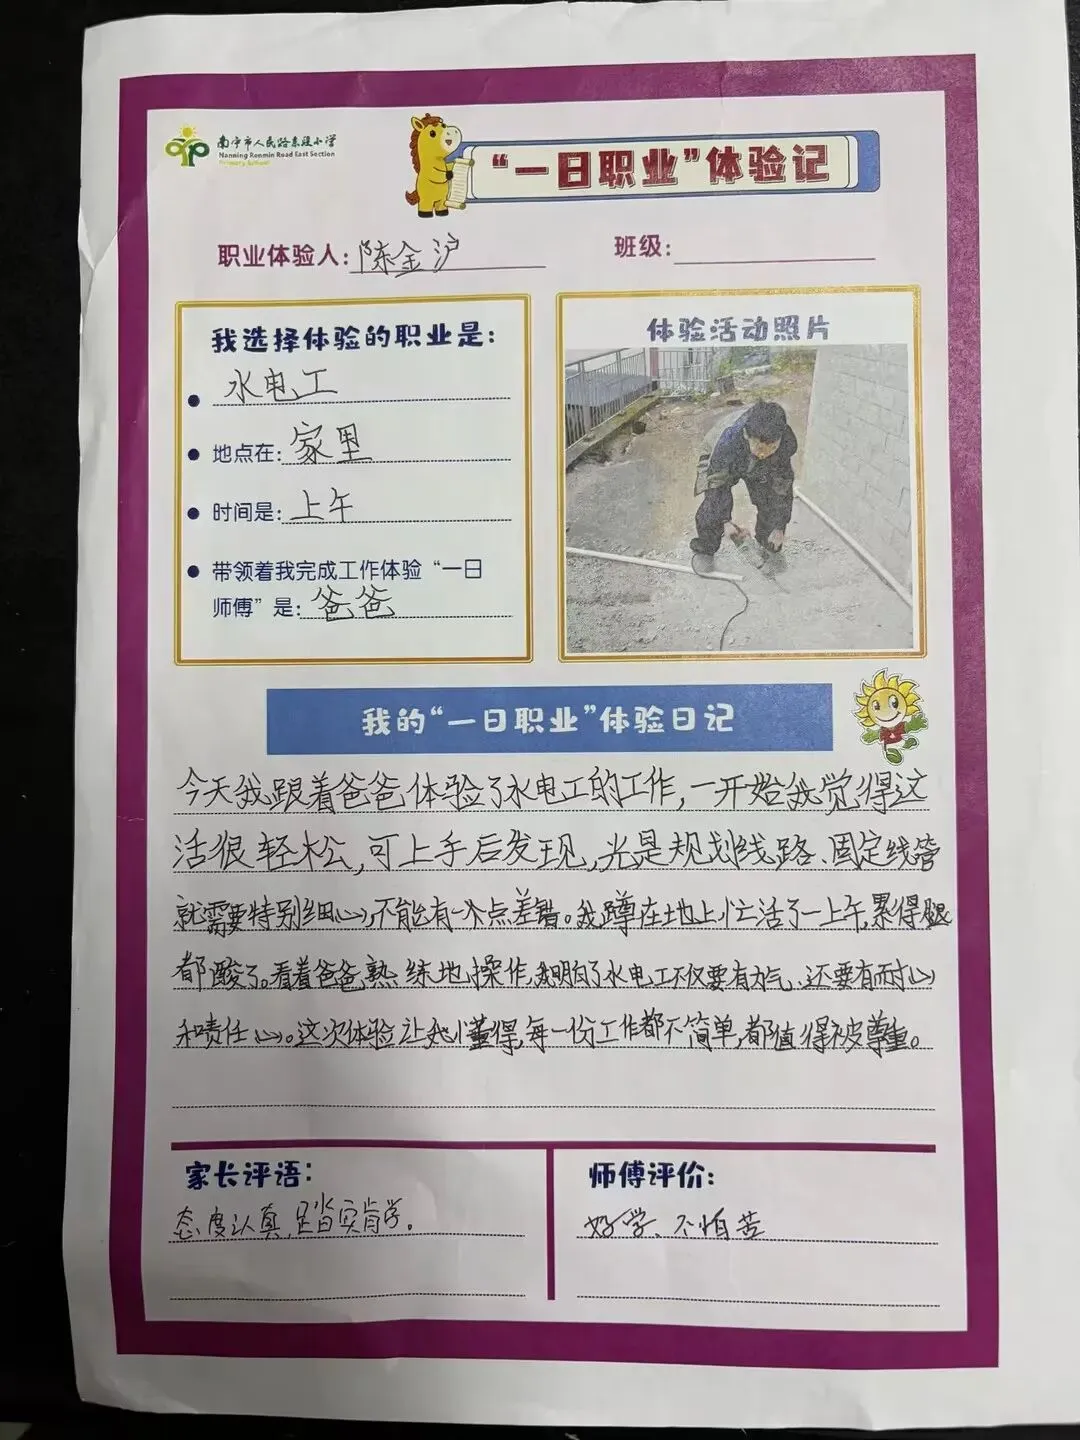 南宁市人民路东段小学
Nanning Renmin Road East Section
Primary School
“一日职业”体验记
职业体验人：陈金沪
班级：
我选择体验的职业是：
水电工
地点在：家里
时间是：上午
带领着我完成工作体验“一日
师傅”是：爸爸
体验活动照片
我的“一日职业”体验日记
今天我跟着爸爸体验了水电工的工作，一开始我觉得这
活很轻松，可上手后发现，光是规划线路、固定线管
就需要特别细心，不能有一个点差错。我蹲在地上忙活了一上午，累得腿
都酸了。看着爸爸熟练地操作，我明白了水电工不仅要有力气、还要有耐心
和责任心。这次体验让我懂得，每一份工作都不简单，都值得被尊重。
家长评语：
态度认真，踏实肯学。
师傅评价：
好学、不怕苦